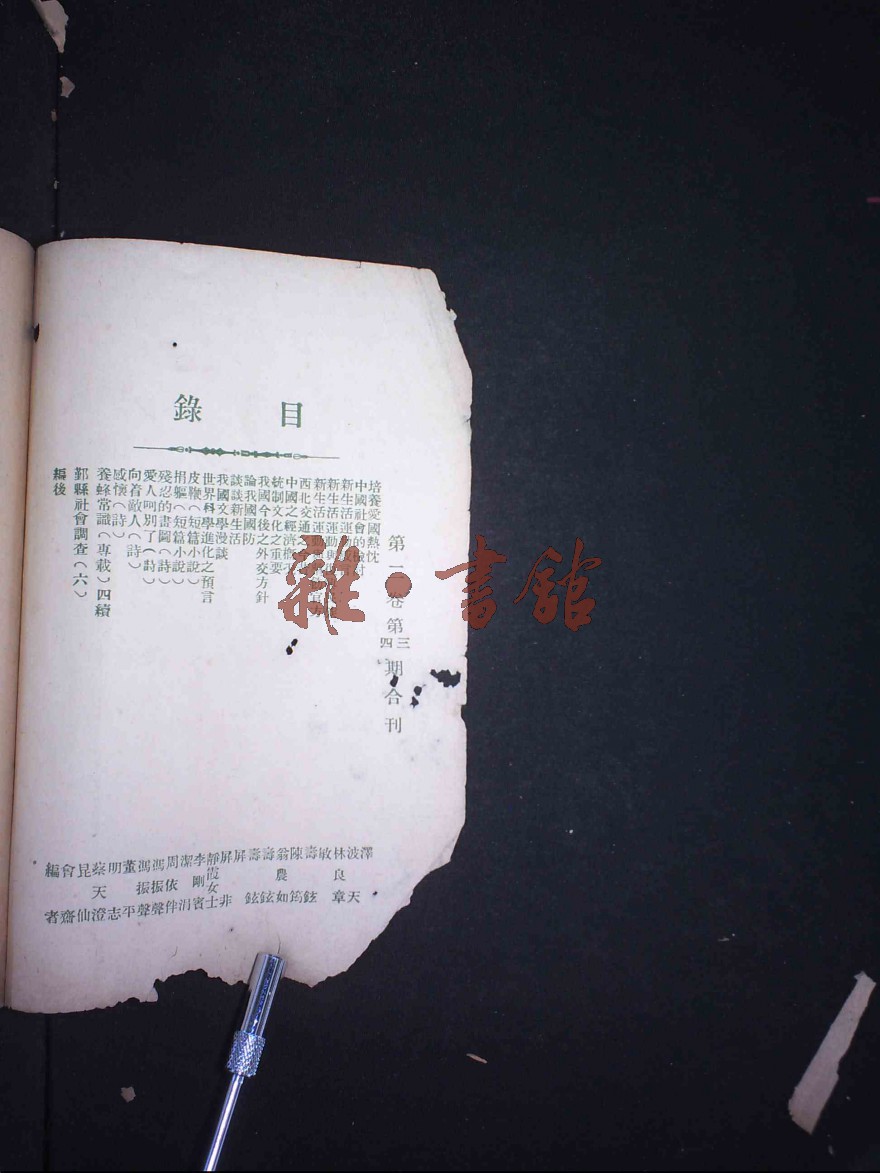 目錄
第一卷第三四期合刊
培養愛國熱忱
中國社會的
新生活運動
新生活運動與
新生活運動
西北交通之
中國之經濟概
統制文化之重要
我國今後之外交方針
論我國國防
談談新生活
我國文學漫談
世界科學進化之預言
皮鞭(短篇小說)
捐軀(短篇小說)
殘忍的書圖(詩)
愛人呵別了(詩)
向着敵人(詩)
感懷(詩)
養蜂常識(專載)四續
鄞縣社會調查(六)
編後
澤
波天
林良章
敏
壽鉉
陳筠
翁農如
壽鉉
壽鉉
屏
屏非
靜霞女士
李剛賓
潔涓
周依伴
馮振聲
馮振聲
董平
明志
蔡天澄
昆仙
會齋
編者
雜·書館